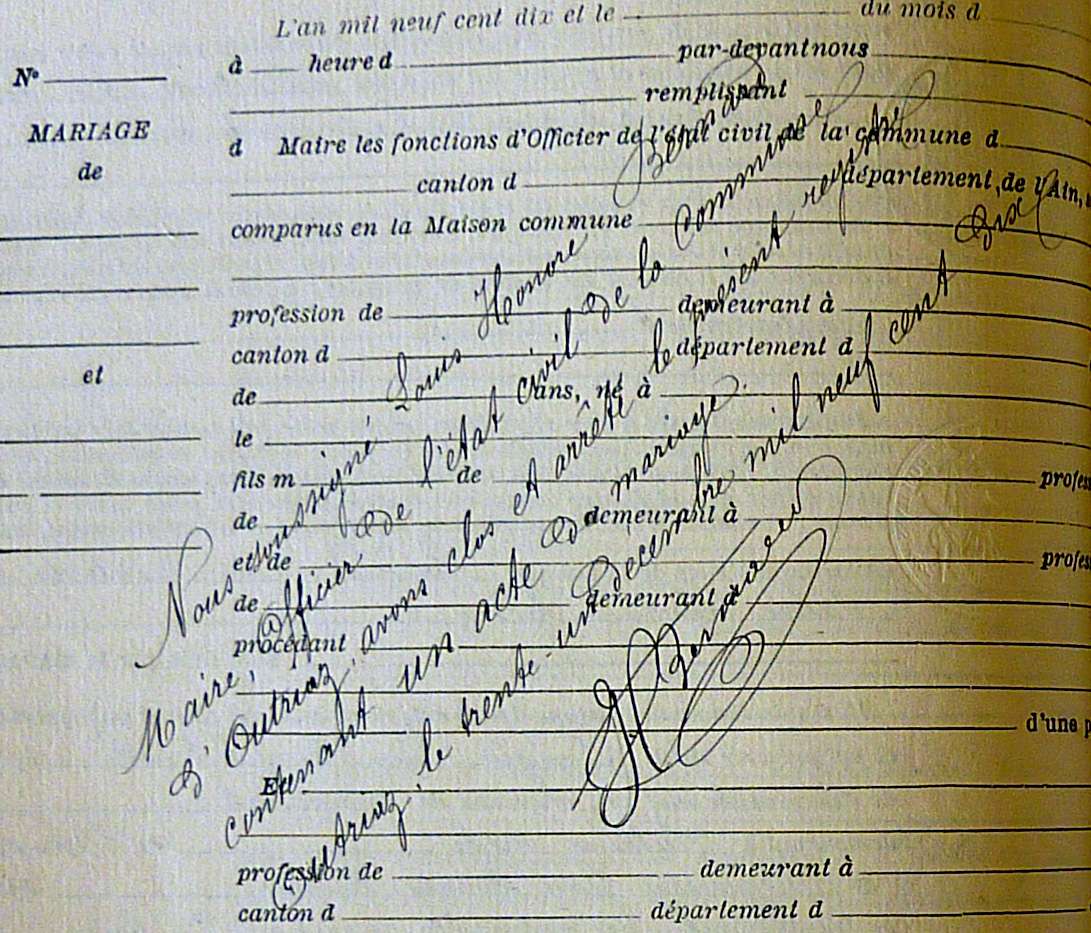 L'an mil neuf cent dix et le du mois d
à heure d par-devant nous
remplissant
d Maire les fonctions d'Officier de l'état civil de la commune d
canton d département de l'Ain,
comparus en la Maison commune
profession de demeurant à
canton d département d
de ans, né à
le
fils m de profes
de demeurant à
et de profes
de demeurant à
procédant
d'une p
Et
profession de demeurant à
canton d département d
N°
MARIAGE
de
et
Nous soussigné Louis Honoré Bernard
Maire, Officier de l'état civil de la Commune
d'Outriaz, avons clos et arrêté le présent registre
contenant un acte de mariage.
Outriaz, le trente-un Décembre mil neuf cent dix